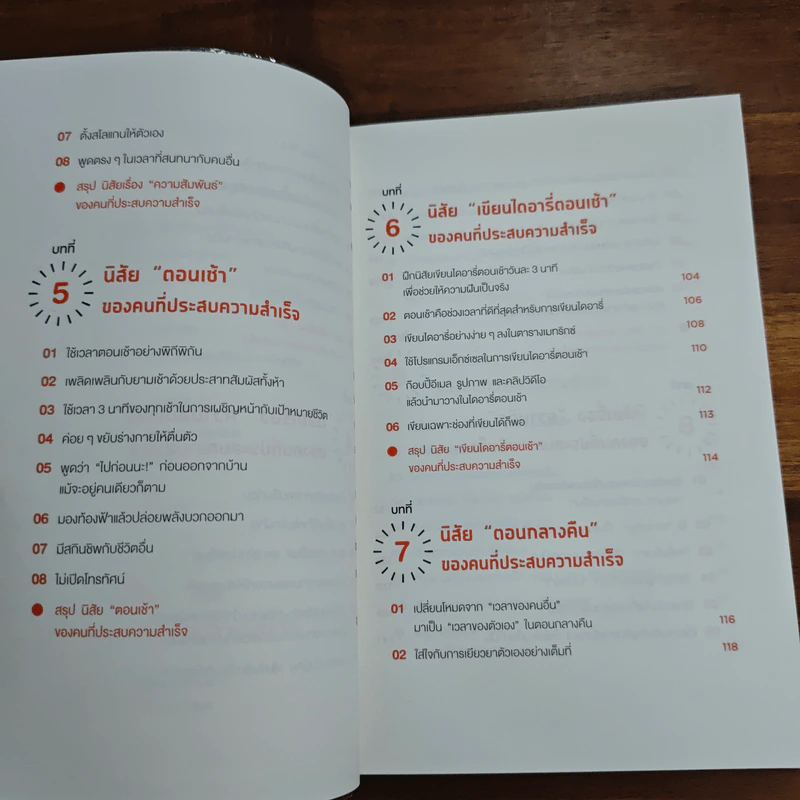 07 ตั้งสโลแกนให้ตัวเอง
08 พูดตรง ๆ ในเวลาที่สนทนากับคนอื่น
สรุป นิสัยเรื่อง “ความสัมพันธ์”
ของคนที่ประสบความสำเร็จ
บทที่
5
นิสัย “ตอนเช้า”
ของคนที่ประสบความสำเร็จ
01 ใช้เวลาตอนเช้าอย่างพิถีพิถัน
02 เพลิดเพลินกับยามเช้าด้วยประสาทสัมผัสทั้งห้า
03 ใช้เวลา 3 นาทีของทุกเช้าในการเผชิญหน้ากับเป้าหมายชีวิต
04 ค่อย ๆ ขยับร่างกายให้ตื่นตัว
05 พูดว่า “ไปก่อนนะ!” ก่อนออกจากบ้าน
แม้จะอยู่คนเดียวก็ตาม
06 มองท้องฟ้าแล้วปล่อยพลังบวกออกมา
07 มีสกินชิพกับชีวิตอื่น
08 ไม่เปิดโทรทัศน์
สรุป นิสัย “ตอนเช้า”
ของคนที่ประสบความสำเร็จ
บทที่
6
นิสัย “เขียนไดอารี่ตอนเช้า”
ของคนที่ประสบความสำเร็จ
01 ฝึกนิสัยเขียนไดอารี่ตอนเช้าวันละ 3 นาที
เพื่อช่วยให้ความฝันเป็นจริง 104
02 ตอนเช้าคือช่วงเวลาที่ดีที่สุดสำหรับการเขียนไดอารี่ 106
03 เขียนไดอารี่อย่างง่าย ๆ ลงในตารางเมทริกซ์ 108
04 ใช้โปรแกรมเอ็กซ์เซลในการเขียนไดอารี่ตอนเช้า 110
05 ก๊อบปี้อีเมล รูปภาพ และคลิปวิดีโอ
แล้วนำมาวางในไดอารี่ตอนเช้า 112
06 เขียนเฉพาะช่องที่เขียนได้ก็พอ 113
สรุป นิสัย “เขียนไดอารี่ตอนเช้า”
ของคนที่ประสบความสำเร็จ 114
บทที่
7
นิสัย “ตอนกลางคืน”
ของคนที่ประสบความสำเร็จ
01 เปลี่ยนโหมดจาก “เวลาของคนอื่น”
มาเป็น “เวลาของตัวเอง” ในตอนกลางคืน 116
02 ใส่ใจกับการเยียวยาตัวเองอย่างเต็มที่ 118